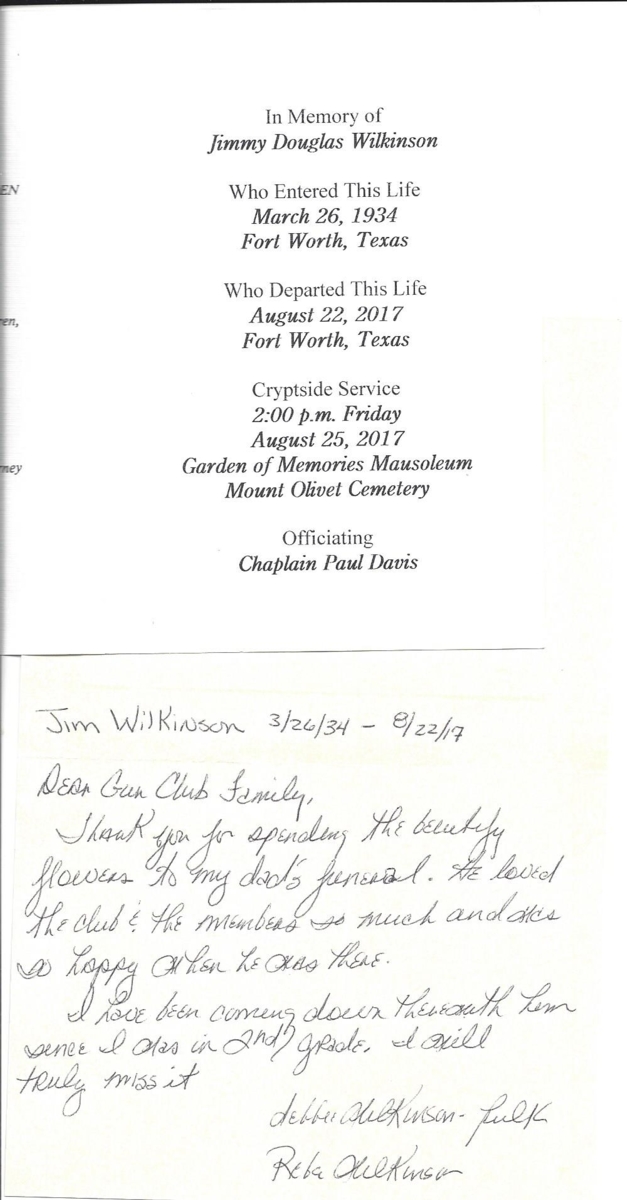 In Memory of
Jimmy Douglas Wilkinson
Who Entered This Life
March 26, 1934
Fort Worth, Texas
EN
Who Departed This Life
August 22, 2017
Fort Worth, Texas
en,
Cryptside Service
2:00 p.m. Friday
August 25, 2017
Garden of Memories Mausoleum
ney
Mount Olivet Cemetery
Officiating
Chaplain Paul Davis
Jim Wilkinson 3/26/34 - 8/22/17
Dear Gun Club Family,
Thank you for spending the beautify
flowers to my dad's funeral. He loved
the club & the members so much and was
so happy when he was there.
I have been coming down there with him
since I was in 2nd grade. I will
truly miss it
Debbie Wilkinson - Fulk
Reba Wilkinson